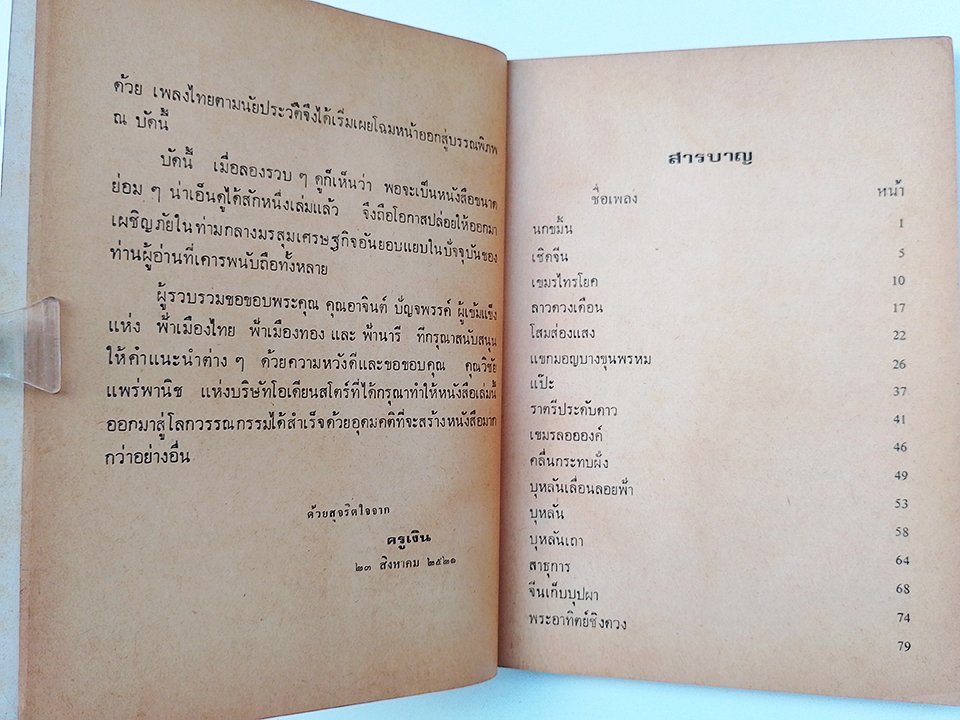 ด้วย เพลงไทยตามนัยประวัติจึงได้เริ่มเผยโฉมหน้าออกสู่บรรณพิภพ
ณ บัดนี้
บัดนี้ เมื่อลองรวบ ๆ ดูก็เห็นว่า พอจะเป็นหนังสือขนาด
ย่อม ๆ น่าเอ็นดูได้สักหนึ่งเล่มแล้ว จึงถือโอกาสปล่อยให้ออกมา
เผชิญภัยในท่ามกลางมรสุมเศรษฐกิจอันยอบแยบในปัจจุบันของ
ท่านผู้อ่านที่เคารพนับถือทั้งหลาย
ผู้รวบรวมขอขอบพระคุณ คุณอาจินต์ ปัญจพรรค์ ผู้เข้มแข็ง
แห่ง ฟ้าเมืองไทย ฟ้าเมืองทอง และ ฟ้านารี ที่กรุณาสนับสนุน
ให้คำแนะนำต่าง ๆ ด้วยความหวังดีและขอขอบคุณ คุณวิชัย
แพร่พานิช แห่งบริษัทโอเดียนสโตร์ที่ได้กรุณาทำให้หนังสือเล่มนี้
ออกมาสู่โลกวรรณกรรมได้สำเร็จด้วยอุดมคติที่จะสร้างหนังสือมาก
กว่าอย่างอื่น
ด้วยสุจริตใจจาก
ครูเงิน
๒๓ สิงหาคม ๒๕๒๑
สารบาญ
ชื่อเพลง หน้า
นกขมิ้น 1
เชิดจีน 5
เขมรไทรโยค 10
ลาวดวงเดือน 17
โสมส่องแสง 22
แขกมอญบางขุนพรหม 26
แป๊ะ 37
ราตรีประดับดาว 41
เขมรลอออองค์ 46
คลื่นกระทบฝั่ง 49
บุหลันเลื่อนลอยฟ้า 53
บุหลัน 58
บุหลันเถา 64
สาธุการ 68
จีนเก็บบุปผา 74
พระอาทิตย์ชิงดวง 79